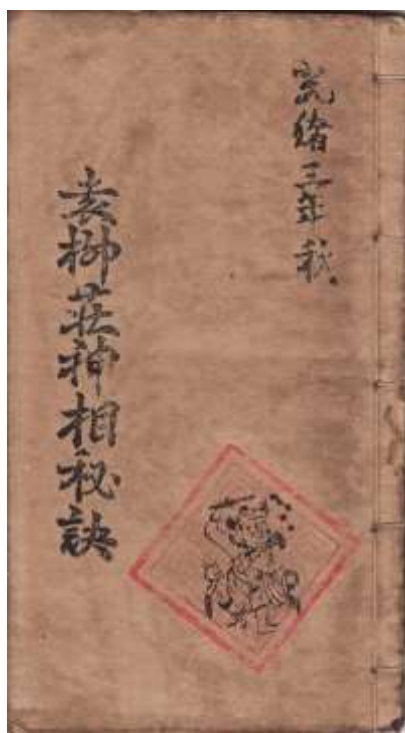 光緒三年秋
袁柳莊神相秘訣